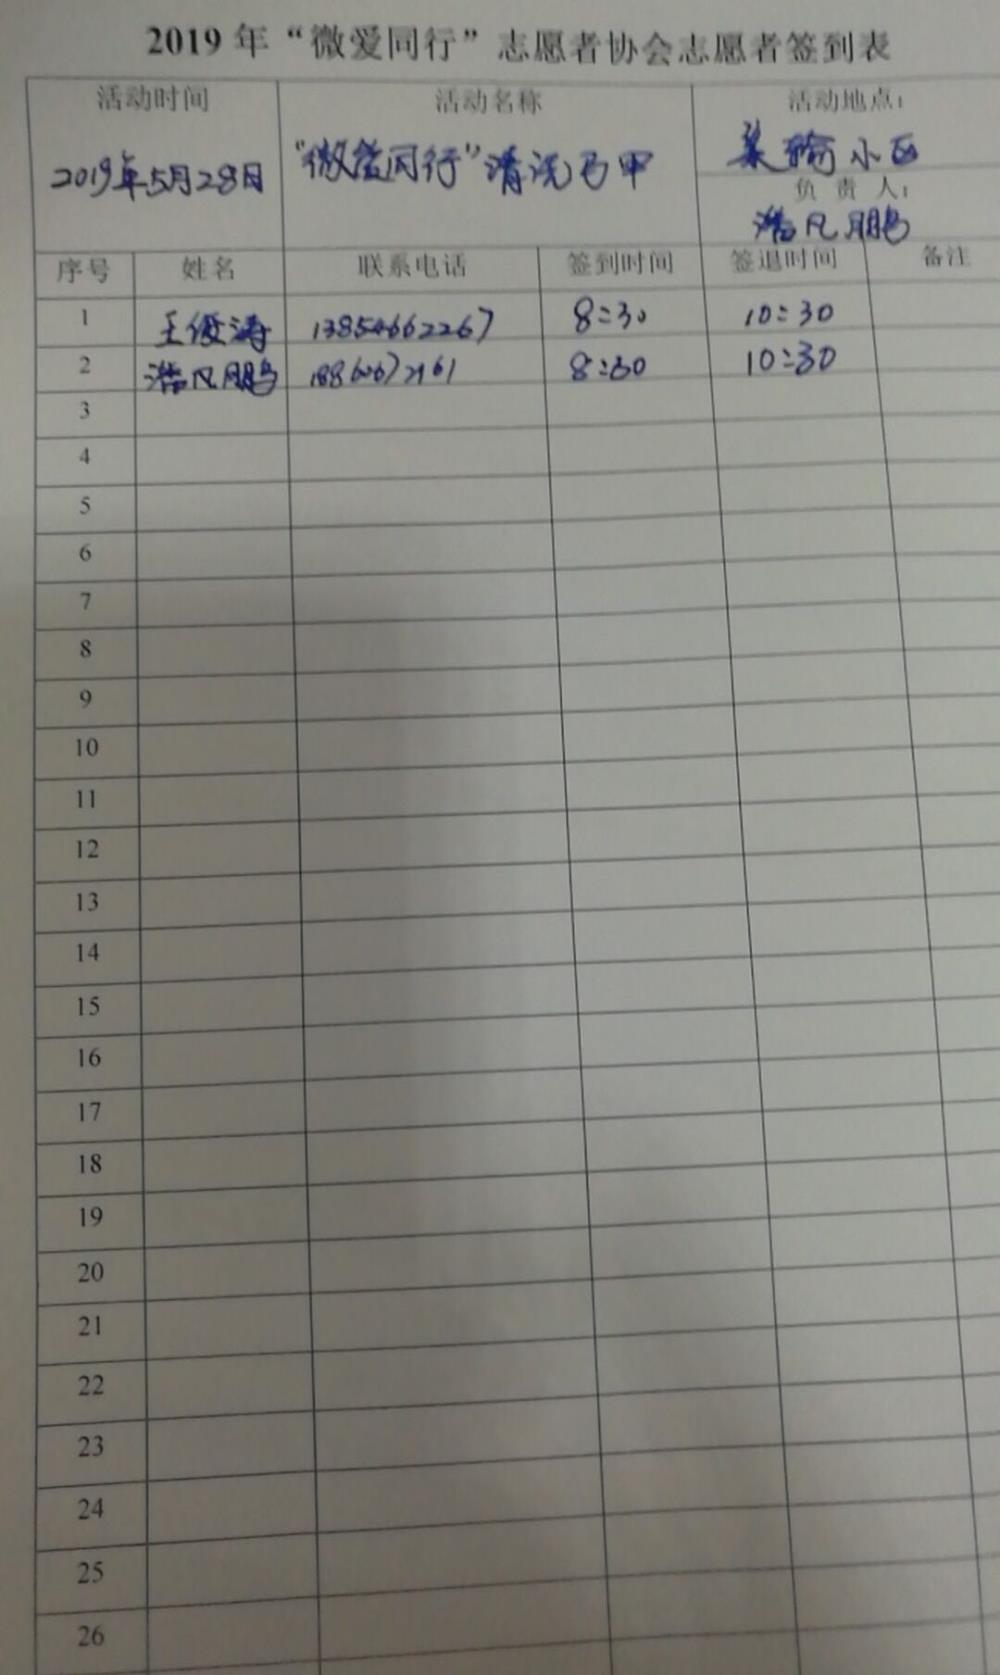 2019 年“微爱同行”志愿者协会志愿者签到表
活动时间 活动名称 活动地点：
2019年5月28日 “微爱同行”清洗马甲 小区
负 责 人：
凡鹏
序号 姓名 联系电话 签到时间 签退时间 备注
1 王俊涛 13854662267 8:30 10:30
2 凡鹏 8:30 10:30
3
4
5
6
7
8
9
10
11
12
13
14
15
16
17
18
19
20
21
22
23
24
25
26